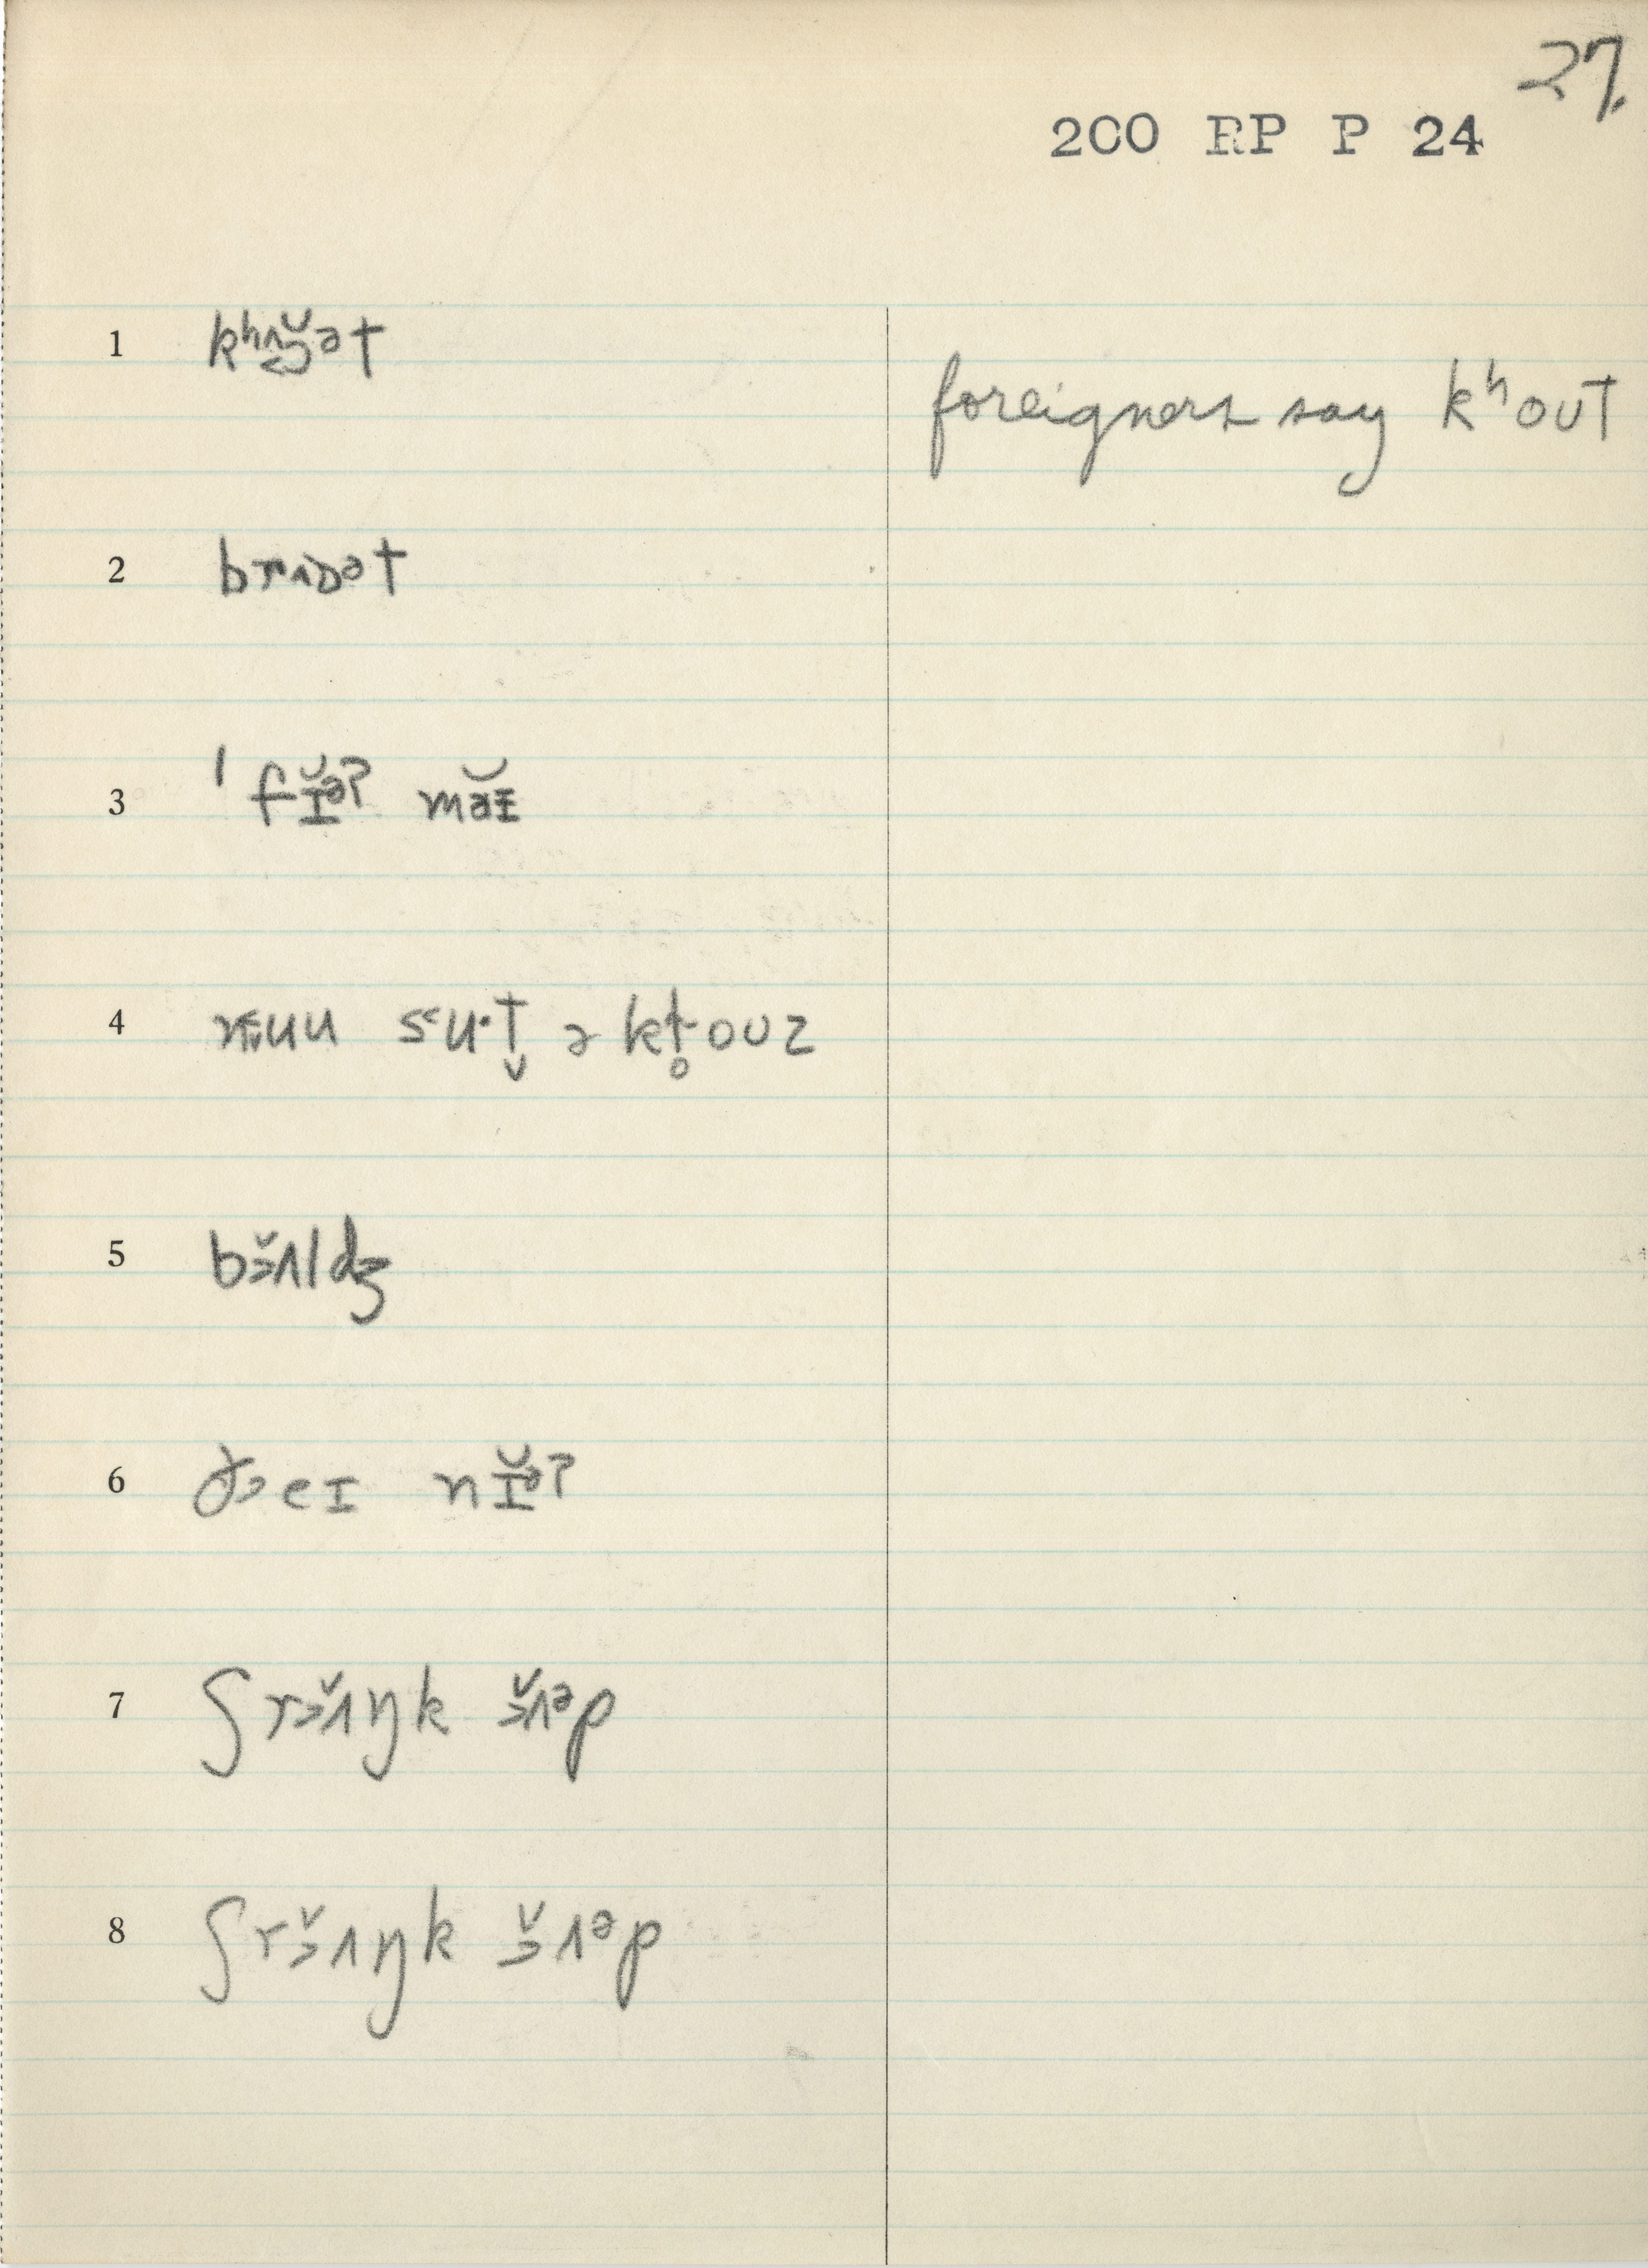 27.
200 RP P 24
1 kʰʌɔ̆ət
foreigners say kʰoʊt
2 brʌɒət
3 ˈfɪ̆əʔ mə̆ɪ
4 nɪuu suˑt̬ ə kt̥oʊz
5 bɜ̆ʌldʒ
6 ðeɪ nɪ̆əʔ
7 ʃrɜ̆ʌŋk ɜ̆ʌᵊp
8 ʃrɜ̆ʌŋk ɜ̆ʌᵊp